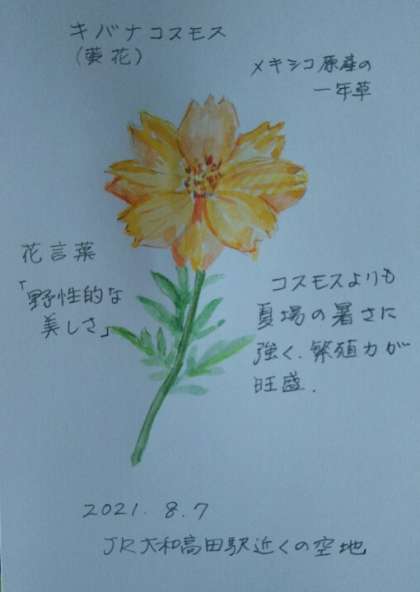 キバナコスモス
(黄花)
メキシコ原産の
一年草
花言葉
「野性的な
美しさ」
コスモスよりも
夏場の暑さに
強く、繁殖力が
旺盛.
2021.8.7
JR大和高田駅近くの空地